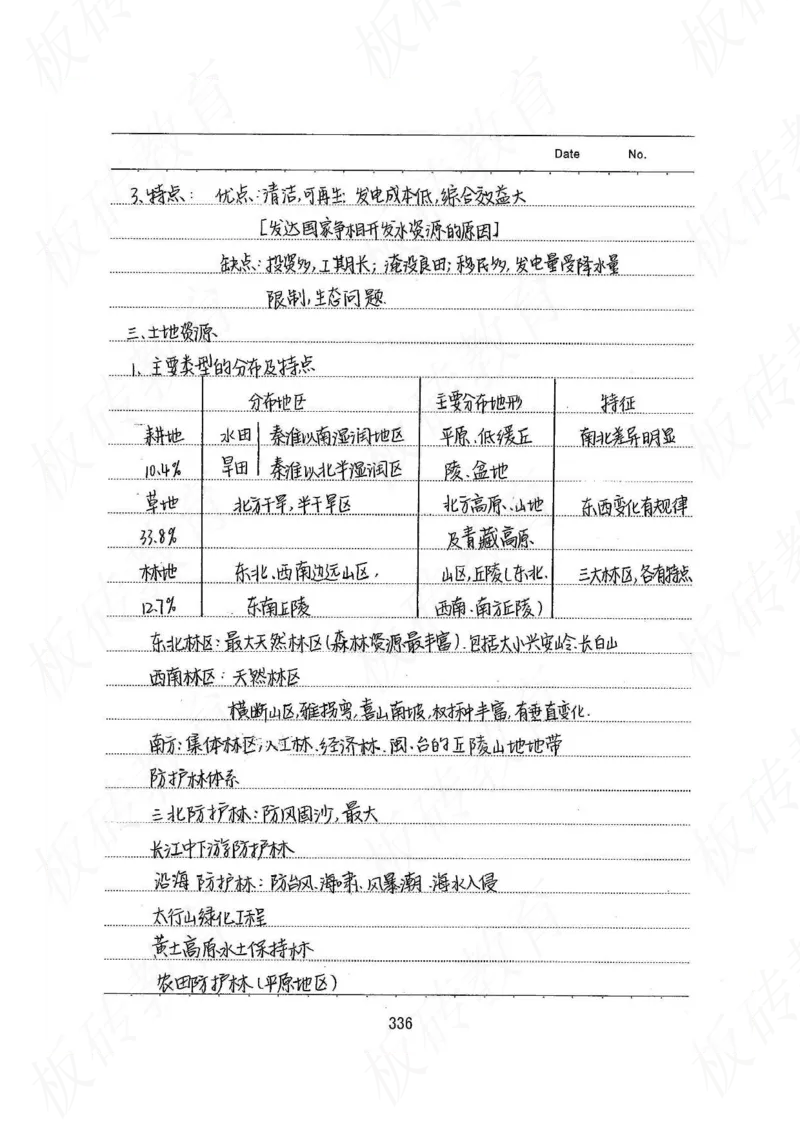 Date No.
3、特点： 优点：清洁,可再生; 发电成本低,综合效益大
[发达国家争相开发水资源的原因]
缺点：投资多,工期长；淹没良田；移民多,发电量受降水量
限制,生态问题.
三、土地资源
1、主要类型的分布及特点
分布地区 主要分布地形 特征
耕地 水田 秦淮以南湿润地区 平原、低缓丘 南北差异明显
10.4% 旱田 秦淮以北半湿润区 陵、盆地
草地 北方干旱,半干旱区 北方高原、山地 东西变化有规律
33.8% 及青藏高原
林地 东北、西南边远山区, 山区,丘陵(东北、 三大林区,各有特点
12.7% 东南丘陵 西南、南方丘陵)
东北林区：最大天然林区(森林资源最丰富).包括大小兴安岭、长白山
西南林区：天然林区
横断山区,雅拐弯,喜山南坡,树种丰富,有垂直变化.
南方：集体林区;人工林、经济林、闽、台的丘陵山地地带
防护林体系
三北防护林：防风固沙,最大
长江中下游防护林
沿海防护林：防台风、海啸、风暴潮、海水入侵
太行山绿化工程
黄土高原水土保持林
农田防护林(平原地区)
336
板砖教育